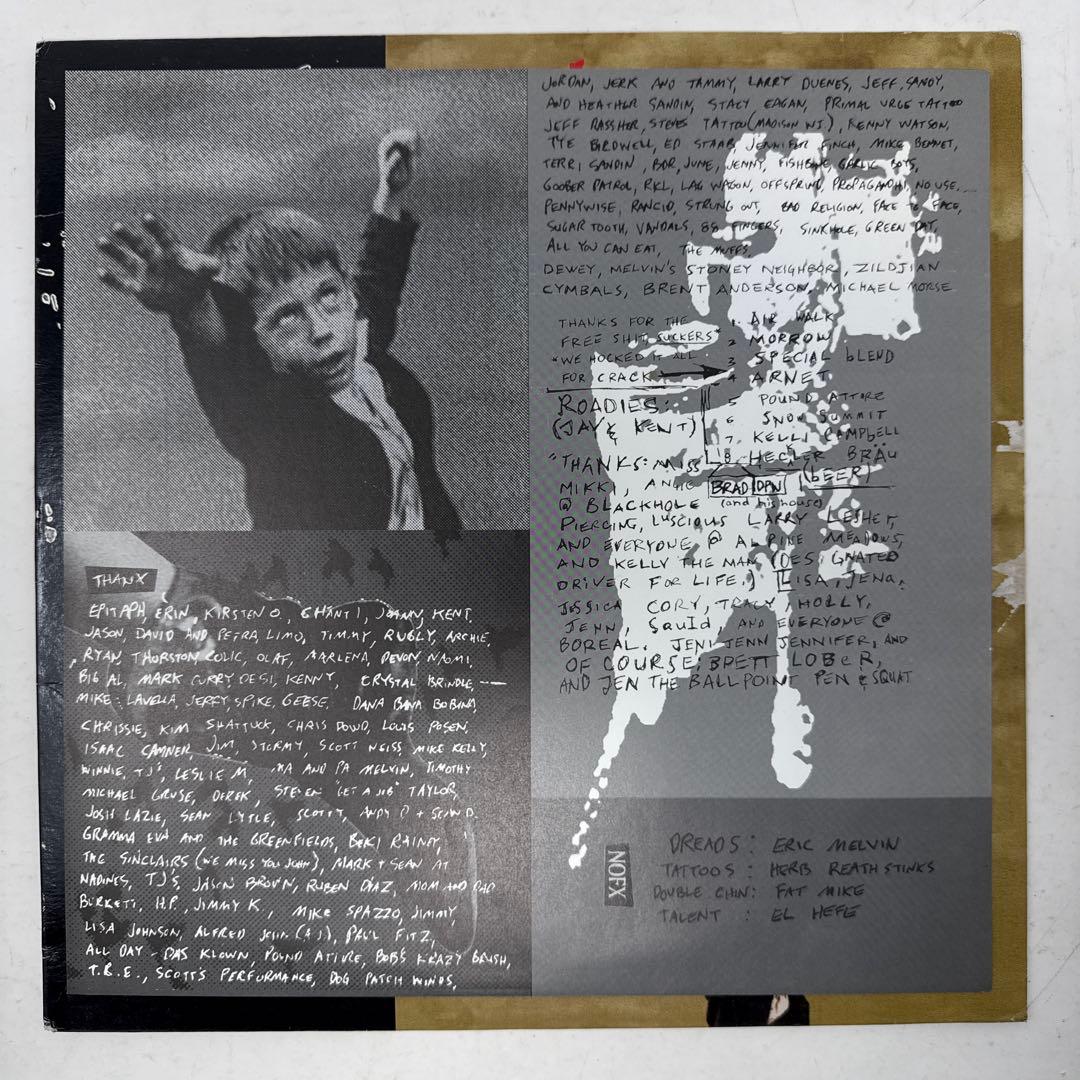 THANX
EPITAPH, ERIN, KIRSTEN O., CHANTI, JOHNNY, KENT,
JASON, DAVID AND PETRA, LIMO, TIMMY, RUGLY, ARCHIE,
RYAN, THORSTON COLIC, OLAF, MARLENA, DEVON, NAOMI,
BIG AL, MARK CURRY DESI, KENNY, CRYSTAL BRINDLE,
MIKE LAVELLA, JERRY, SPIKE, GEESE, DANA BANA BOBINA,
CHRISSIE, KIM SHATTUCK, CHRIS DOWD, LOUIS POSEN,
ISAAC CAMNER, JIM, STORMY, SCOTT WEISS, MIKE KELLY,
WINNIE, TJ'S, LESLIE M, MA AND PA MELVIN, TIMOTHY
MICHAEL GRUSE, DEREK, STEVEN "GET A JOB" TAYLOR,
JOSH LAZIE, SEAN LYTLE, SCOTTY, ANDY P + SEAN D.
GRAMMA EVA AND THE GREENFIELDS, BEKI RAINEY,
THE SINCLAIRS (WE MISS YOU JOHN), MARK + SEAN AT
NADINES, TJ'S, JASON BROWN, RUBEN DIAZ, MOM AND DAD
BURKETT, H.P., JIMMY K., MIKE SPAZZO, JIMMY,
LISA JOHNSON, ALFRED JOHN (AJ), PAUL FITZ,
ALL DAY - DAS KLOWN, POUND ATIVRE, BOB'S KRAZY BRUSH,
T.R.E., SCOTT'S PERFORMANCE, DOG PATCH WINOS,
JORDAN, JERK AND TAMMY, LARRY DUENES, JEFF, SANDY,
AND HEATHER SANDIN, STACY EAGAN, PRIMAL URGE TATTOO
JEFF RASSHER, STEVES TATTOO (MADISON WI), KENNY WATSON,
TYE BIRDWELL, ED STAAB, JENNIFER FINCH, MIKE BENNET,
TERRI SANDIN, BOR, JUNE, JENNY, FISHBONE, GARLIC BOYS,
GOOBER PATROL, RKL, LAG WAGON, OFFSPRING, PROPAGANDHI, NO USE,
PENNYWISE, RANCID, STRUNG OUT, BAD RELIGION, FACE TO FACE,
SUGAR TOOTH, VANDALS, 88 FINGERS, SINKHOLE, GREEN DAY,
ALL YOU CAN EAT, THE MUFFS,
DEWEY, MELVIN'S STONEY NEIGHBOR, ZILDJIAN
CYMBALS, BRENT ANDERSON, MICHAEL MORSE
THANKS FOR THE
FREE SHIT, SUCKERS*
*WE HOCKED IT ALL
FOR CRACK
1. AIR WALK
2 MORROW
3 SPECIAL bLEND
4 ARNET
5 POUND ATTORE
6 SNOW SUMMIT
7. KELLI CAMPbELL
8. HECLER BRÄU
(bEER)
ROADIES:
(JAY & KENT)
"THANKS: MISS
MIKKI, ANNE
@ BLACKHOLE
BRAD DPN
(and his house)
PIERCING, LUSCIOUS LARRY LESHER,
AND EVERYONE @ ALPINE MEADOWS,
AND KELLY THE MAN (DESIGNATED
DRIVER FOR LIFE,) LISA, JENA,
JESSICA CORY, TRACY, HOLLY,
JENN, SquId, AND EVERYONE @
BOREAL. JENI JENN JENNIFER, AND
OF COURSE; BRETT LOBER,
AND JEN THE BALLPOINT PEN & SQUAT
NOFX
DREADS: ERIC MELVIN
TATTOOS: HERB REATHSTINKS
DOUBLE CHIN: FAT MIKE
TALENT: EL HEFE